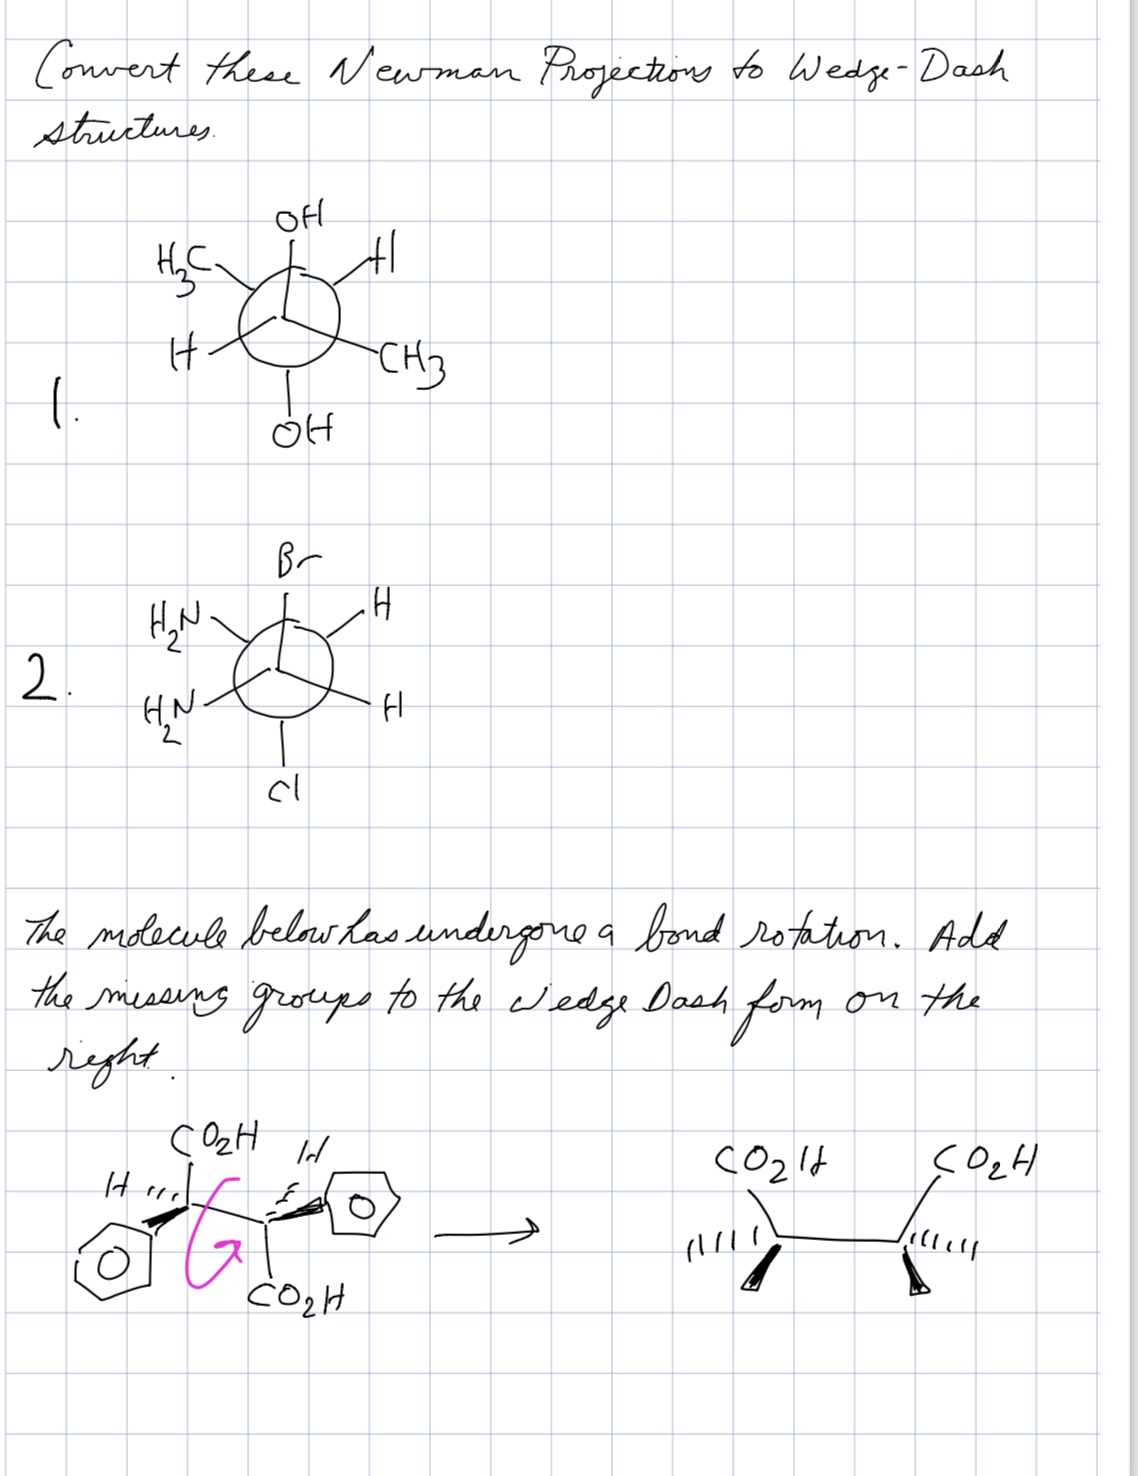 Convert these Newman Projections to Wedge-Dash
structures.
OH
H₃C
H
H
CH₃
1.
OH
Br
H₂N
H
2.
H₂N
H
Cl
The molecule below has undergone a bond rotation. Add
the missing groups to the Wedge Dash form on the
right.
CO₂H
H
H
CO₂H
CO₂H
CO₂H